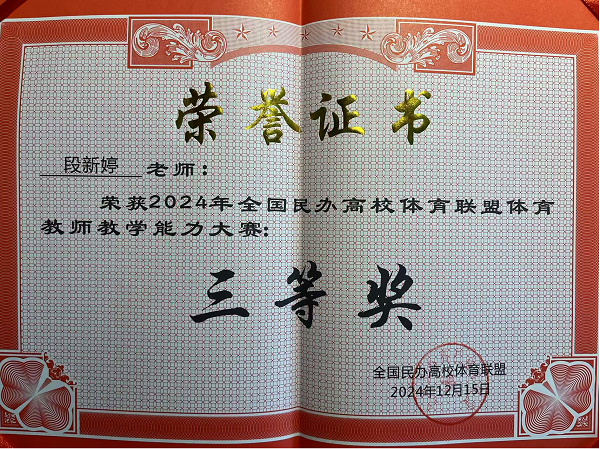 荣誉证书
段新婷 老师：
荣获2024年全国民办高校体育联盟体育
教师教学能力大赛:
三等奖
全国民办高校体育联盟
2024年12月15日